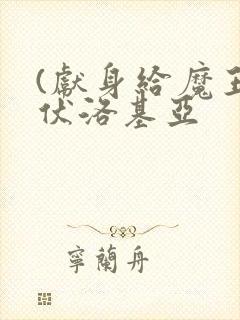 (獻身給魔王
伏洛基亞
寧蘭舟